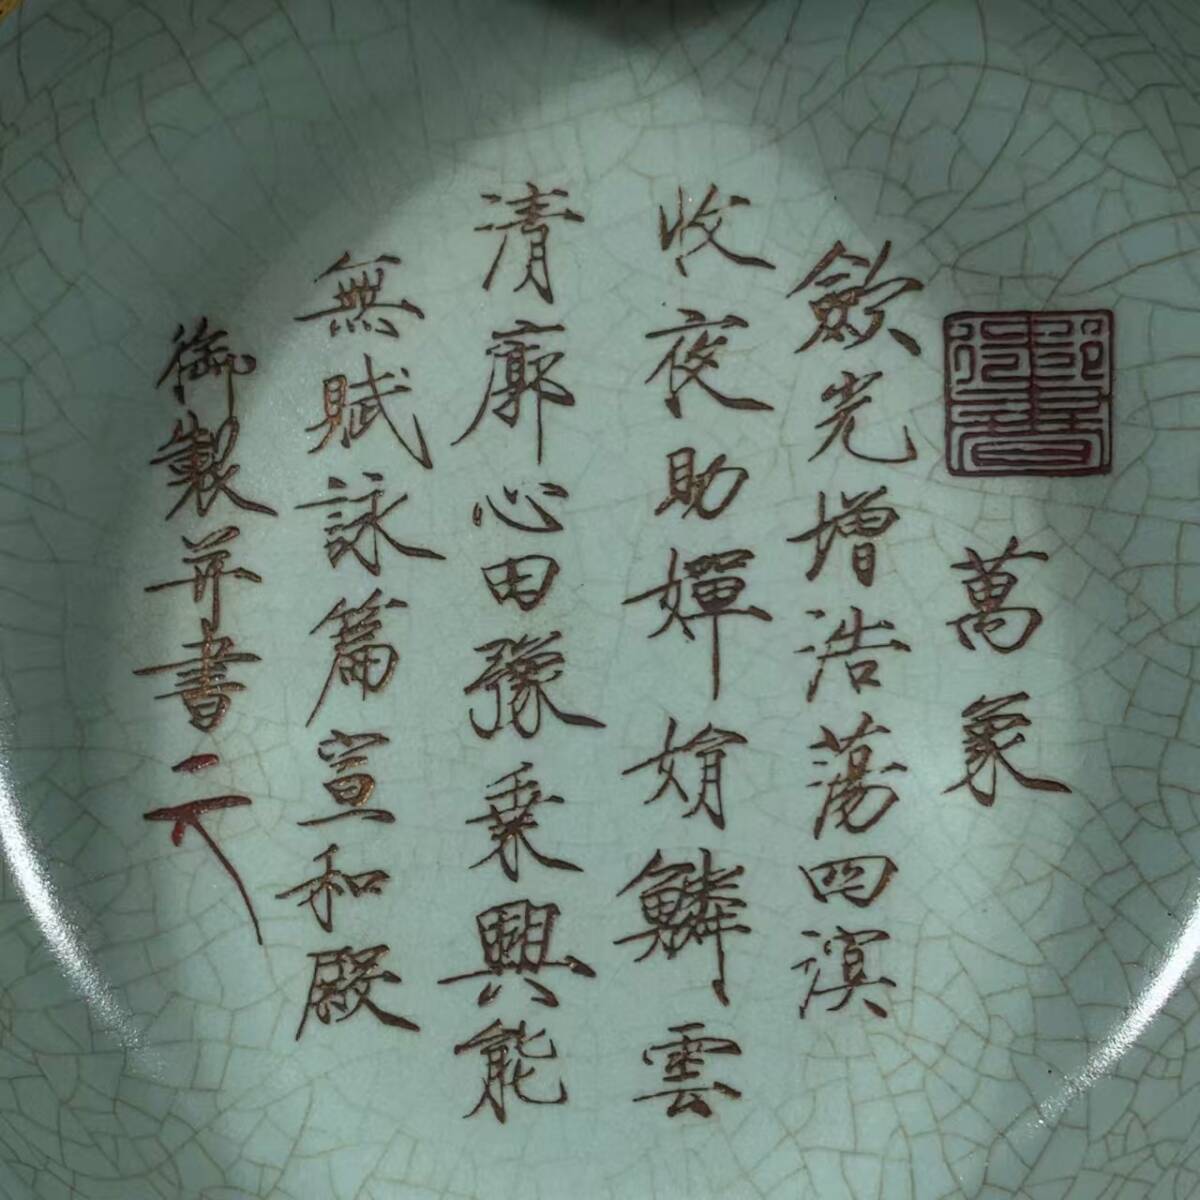 萬象
歛光增浩蕩四溟
收夜助嬋娟鱗雲
清廓心田豫乗興能
無賦詠篇宣和殿
御製并書